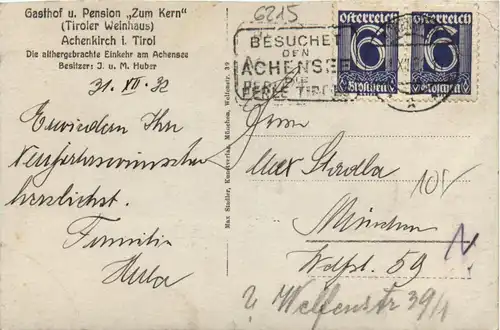 Gasthof u. Pension „Zum Kern"
(Tiroler Weinhaus)
Achenkirch i. Tirol
Die althergebrachte Einkehr am Achensee
Besitzer: J. u. M. Huber
31. XII. 32
Erwiedern Ihr
Neujahrswünsche
herzlichst.
Familie
Huber
Max Stadler, Kunstverlag, München,
6215
BESUCHET
DEN
ACHENSEE
DIE
PERLE TIROLS
Österreich
6
Groschen
Österreich
6
Groschen
Herrn
Max Stadler
10/
München
Wolfst. 59
Welfenstr 39/1